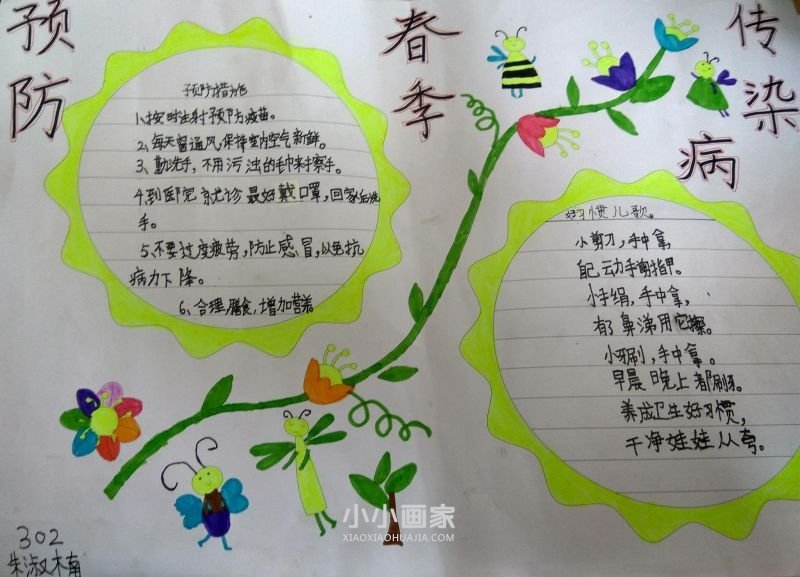 预防
春季
传染病
预防措施
1、按时注射预防疫苗。
2、每天窗通风,保持室内空气新鲜。
3、勤洗手,不用污浊的毛巾来擦手。
4、到医院就诊最好戴口罩,回家后洗
手。
5、不要过度疲劳,防止感冒,以免抗
病力下降。
6、合理膳食,增加营养。
好习惯儿歌。
小剪刀,手中拿,
自己动手剪指甲。
小手绢,手中拿,
有鼻涕用它擦。
小牙刷,手中拿。
早晨晚上都刷牙。
养成卫生好习惯,
干净娃娃人人夸。
302
朱淑楠
小小画家
XIAOXIAOHUAJIA.COM